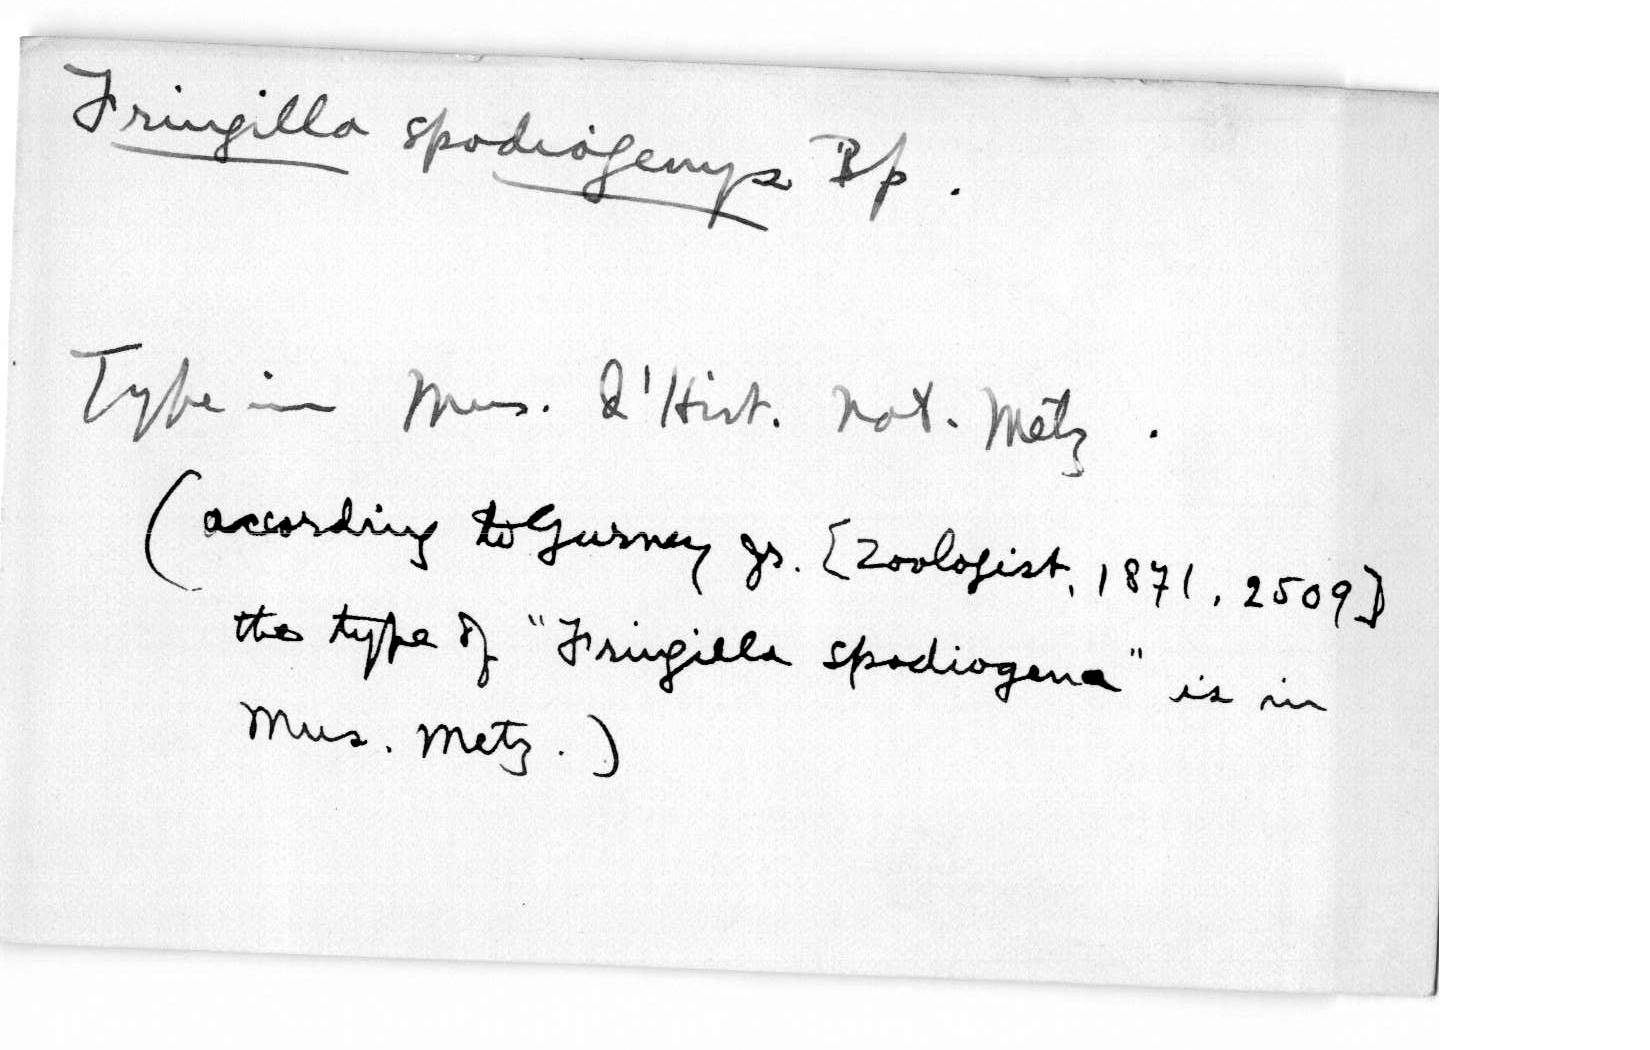 Fringilla spodiogenys Bp.
Type in Mus. d'Hist. Nat. Metz.
(according to Gurney jr. [Zoologist, 1871, 2509]
the type of "Fringilla spodiogena" is in
Mus. Metz.)